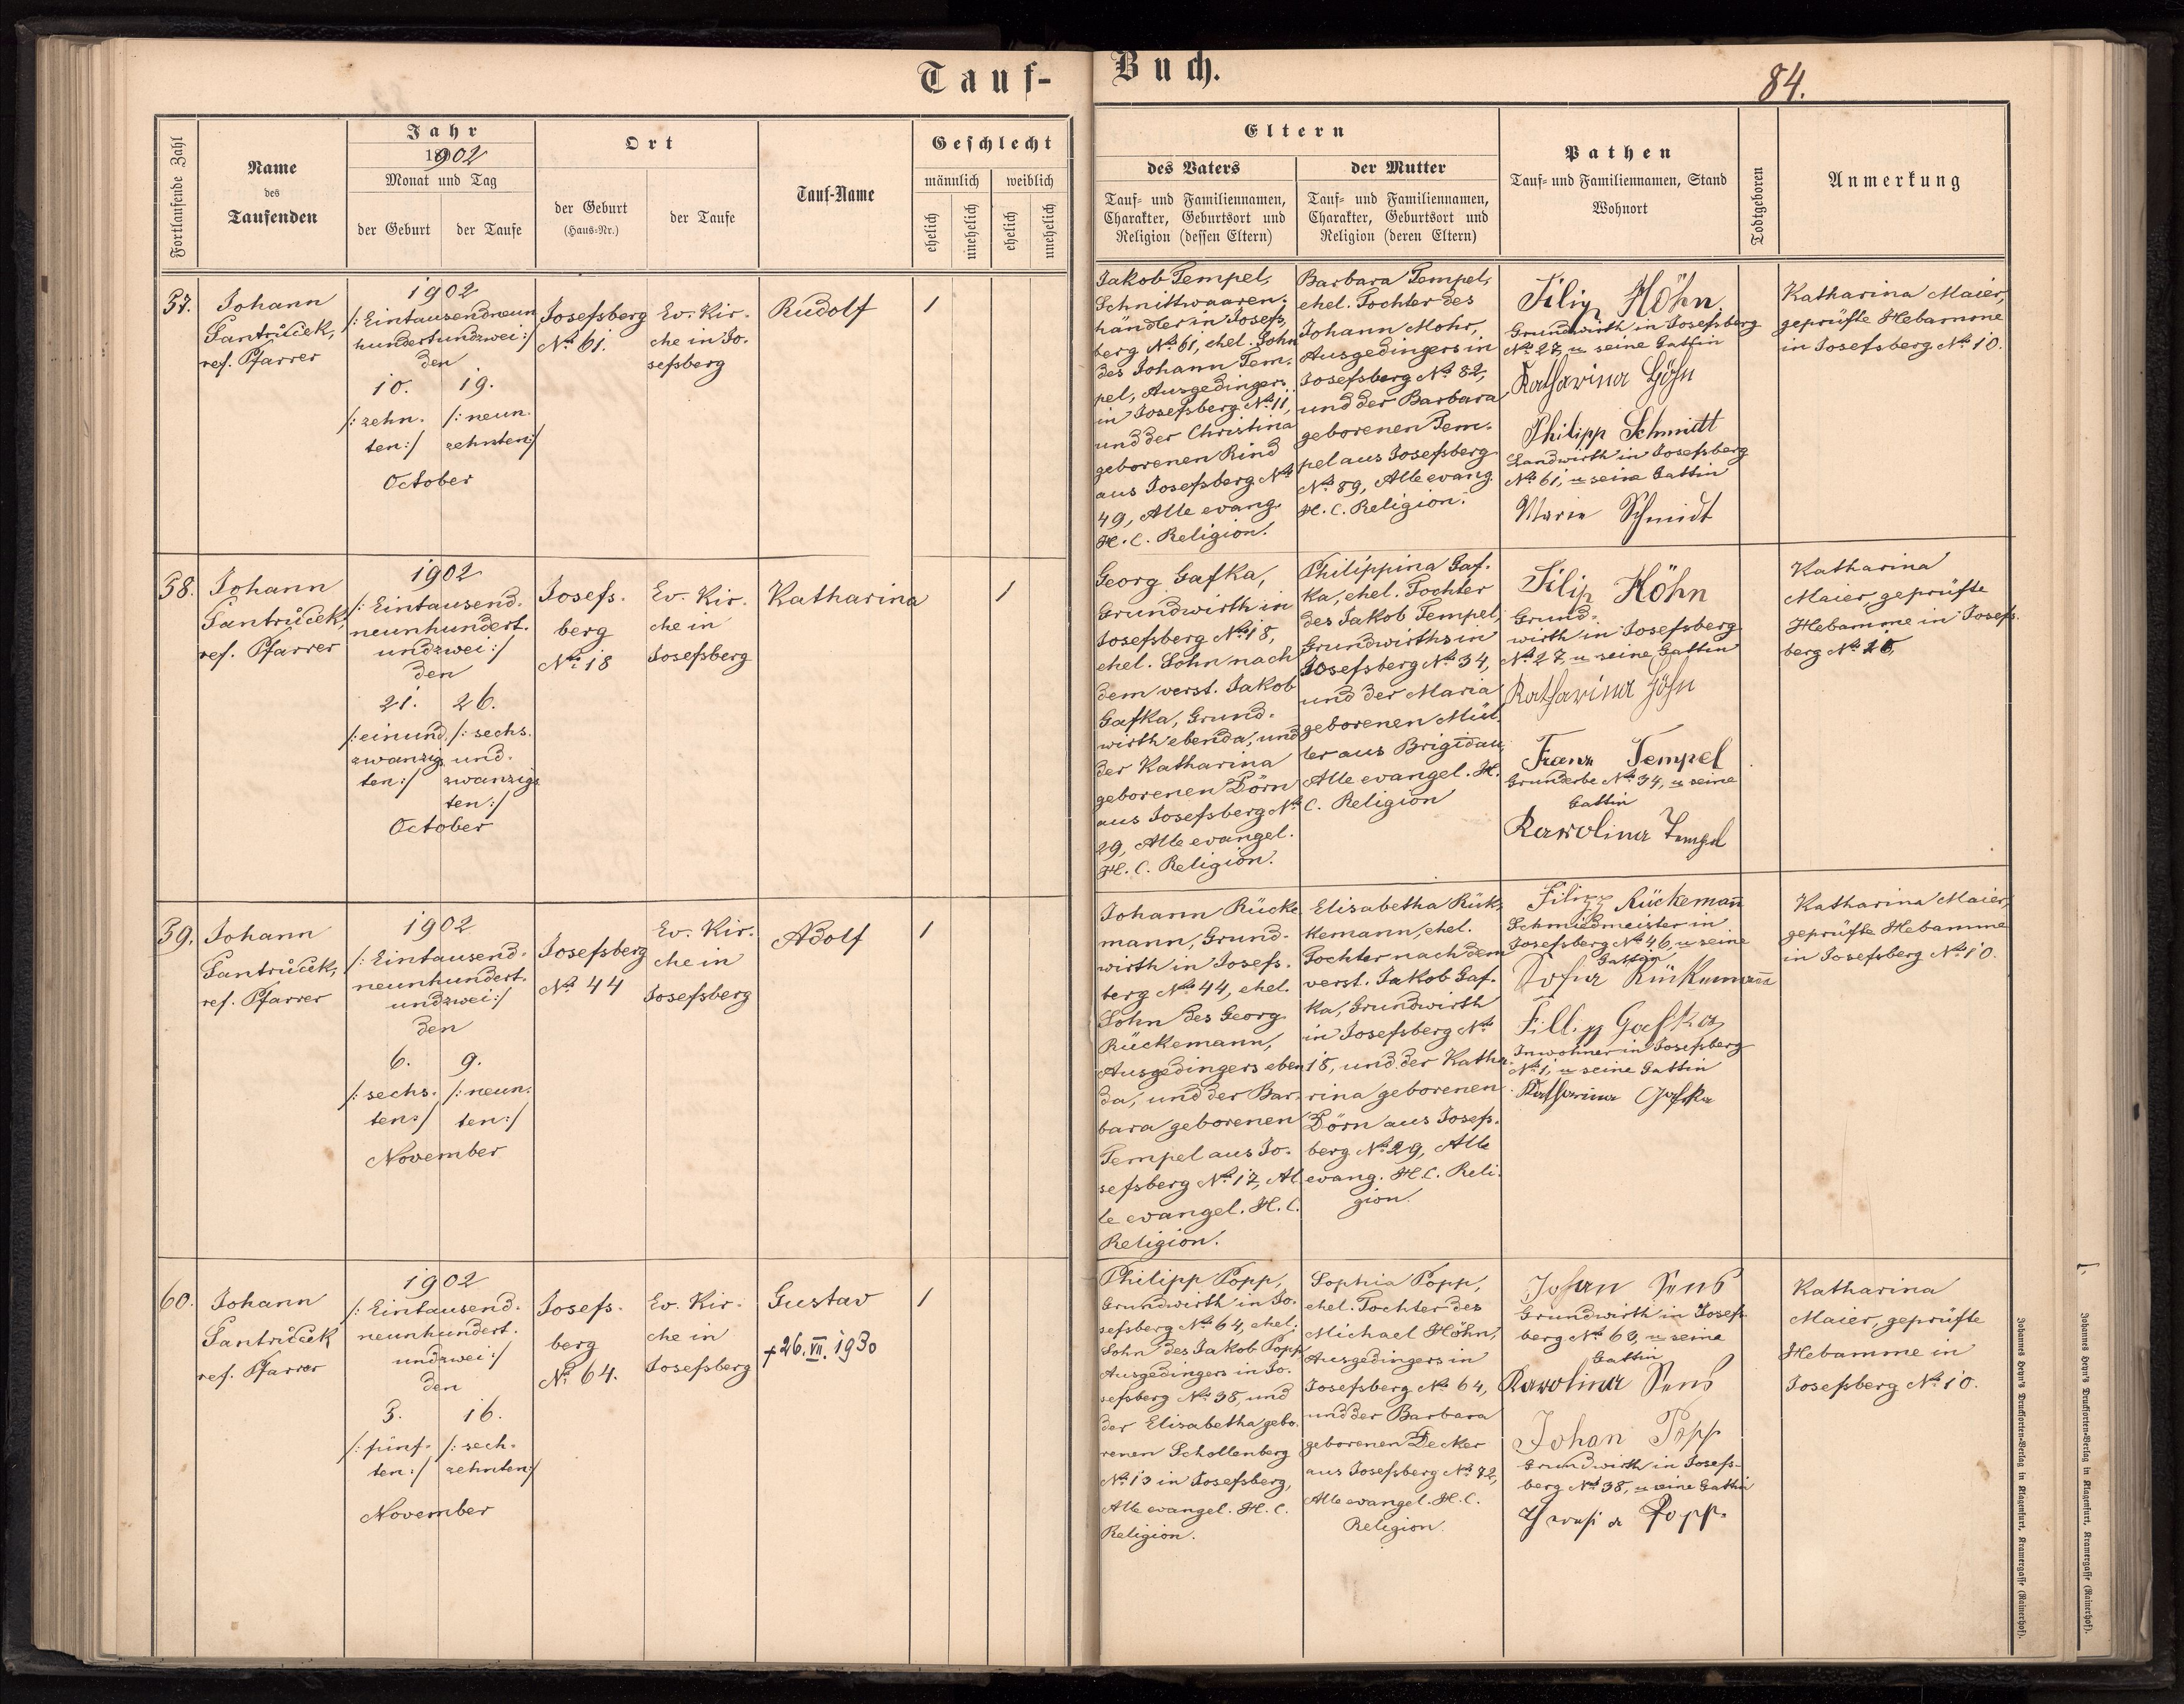 Tauf-
Buch.
84.
Fortlaufende Zahl
Name
des
Taufenden
Jahr
1902
Monat und Tag
der Geburt
der Taufe
Ort
der Geburt
(Haus-Nr.)
der Taufe
Tauf-Name
Geschlecht
männlich
weiblich
ehelich
unehelich
ehelich
unehelich
Eltern
des Vaters
Tauf- und Familiennamen,
Charakter, Geburtsort und
Religion (dessen Eltern)
der Mutter
Tauf- und Familiennamen,
Charakter, Geburtsort und
Religion (deren Eltern)
Pathen
Tauf- und Familiennamen, Stand
Wohnort
Todtgeboren
Anmerkung
57.
Johann
Jantrůček,
ref. Pfarrer
1902
/: Eintausendneun
hundertundzwei :/
den
10.
/: zehn-
ten :/
19.
/: neun-
zehnten :/
October
Josefsberg
No 61.
Ev. Kir-
che in Jo-
sefsberg
Rudolf
1
Jakob Tempel,
Schnittwaaren-
händler in Josefs-
berg No 61, ehel. Sohn
des Johann Tem-
pel, Ausgedingers
in Josefsberg No 11,
und der Christina
geborenen Rind
aus Josefsberg No
49, Alle evang.
H. C. Religion.
Barbara Tempel,
ehel. Tochter des
Johann Mohr,
Ausgedingers in
Josefsberg No 82,
und der Barbara
geborenen Tem-
pel aus Josefsberg
No 89, Alle evang.
H. C. Religion.
Filip Höhn
Grundwirth in Josefsberg
No 27, u seine Gattin
Katharina Höhn
Philipp Schmitt
Landwirth in Josefsberg
No 61, u seine Gattin
Marie Schmidt
Katharina Maier,
geprüfte Hebamme
in Josefsberg No 10.
58.
Johann
Jantrůček,
ref. Pfarrer
1902
/: Eintausend-
neunhundert-
undzwei :/
den
21.
/: einund-
zwanzig-
ten :/
26.
/: sechs-
und-
zwanzigs
ten :/
October
Josefs-
berg
No 18
Ev. Kir-
che in
Josefsberg
Katharina
1
Georg Gafka,
Grundwirth in
Josefsberg No 18,
ehel. Sohn nach
dem verst. Jakob
Gafka, Grund-
wirth ebenda, und
der Katharina
geborenen Dörn
aus Josefsberg No
29, Alle evangel.
H. C. Religion.
Philippina Gaf-
ka, ehel. Tochter
des Jakob Tempel,
Grundwirths in
Josefsberg No 34,
und der Maria
geborenen Mül-
ler aus Brigidau,
Alle evangel. H.
C. Religion
Filip Höhn
Grund-
wirth in Josefsberg
No 27, u seine Gattin
Katharina Höhn
Franz Tempel
Grunderbe No 34, u seine
Gattin
Karolina Tempel
Katharina
Maier, geprüfte
Hebamme in Josefs-
berg No 10,
59.
Johann
Jantrůček,
ref. Pfarrer
1902
/: Eintausend-
neunhundert-
undzwei :/
den
6.
/: sechs-
ten :/
9.
/: neun-
ten :/
November
Josefsberg
No 44
Ev. Kir-
che in
Josefsberg
Adolf
1
Johann Rücke-
mann, Grund-
wirth in Josefs-
berg No 44, ehel.
Sohn des Georg
Rückemann,
Ausgedingers eben-
da, und der Bar-
bara geborenen
Tempel aus Jo-
sefsberg No 17, Al-
le evangel. H. C.
Religion.
Elisabetha Rük-
kemann, ehel.
Tochter nach dem
verst. Jakob Gaf-
ka, Grundwirth
in Josefsberg No
18, und der Katha-
rina geborenen
Dörn aus Josefs-
berg No 29, Alle
evang. H. C. Reli-
gion.
Filipp Rückeman̄
Schmiedmeister in
Josefsberg No 46, u seine
Gattin
Sofia Rückeman̄
Fillipp Gafka
Inwohner in Josefsberg
No 1, u seine Gattin
Katharina Gafka
Katharina Maier,
geprüfte Hebamme
in Josefsberg No 10.
60.
Johann
Jantrůček
ref. Pfarrer
1902
/: Eintausend-
neunhundert-
undzwei :/
den
5.
/: fünf-
ten :/
16.
/: sech-
zehnten :/
November
Josefs-
berg
No 64.
Ev. Kir-
che in
Josefsberg
Gustav
+ 26. VII. 1930
1
Philipp Popp,
Grundwirth in Jo-
sefsberg No 64, ehel.
Sohn des Jakob Popp,
Ausgedingers in Jo-
sefsberg No 38, und
der Elisabetha gebo-
renen Schollenberg
No 13 in Josefsberg,
Alle evangel. H. C.
Religion.
Sophia Popp,
ehel. Tochter des
Michael Höhn,
Ausgedingers in
Josefsberg No 64,
und der Barbara
geborenen Decker
aus Josefsberg No 72,
Alle evangel. H. C.
Religion.
Johan Sens
Grundwirth in Josefs-
berg No 63, u seine
Gattin
Karolina Sens
Johan Popp
Grundwirth in Josefs-
berg No 38, u seine Gattin
Popp.
Katharina
Maier, geprüfte
Hebamme in
Josefsberg No 10.
Johannes Heyn's Drucksorten-Verlag in Klagenfurt, Kramergasse (Rainerhof).
Johannes Heyn's Drucksorten-Verlag in Klagenfurt, Kramergasse (Rainerhof).